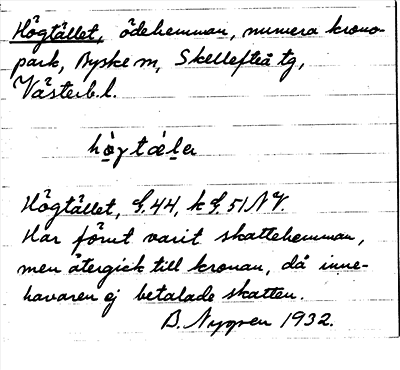 Högtållet, ödehemman, numera krono-
park, Byske m, Skellefteå tg,
Västerb. l.
Högtållet, G. 44, k G. 51 NV.
Har förut varit skattehemman,
men återgick till kronan, då inne-
havaren ej betalade skatten.
B. Nygren 1932.